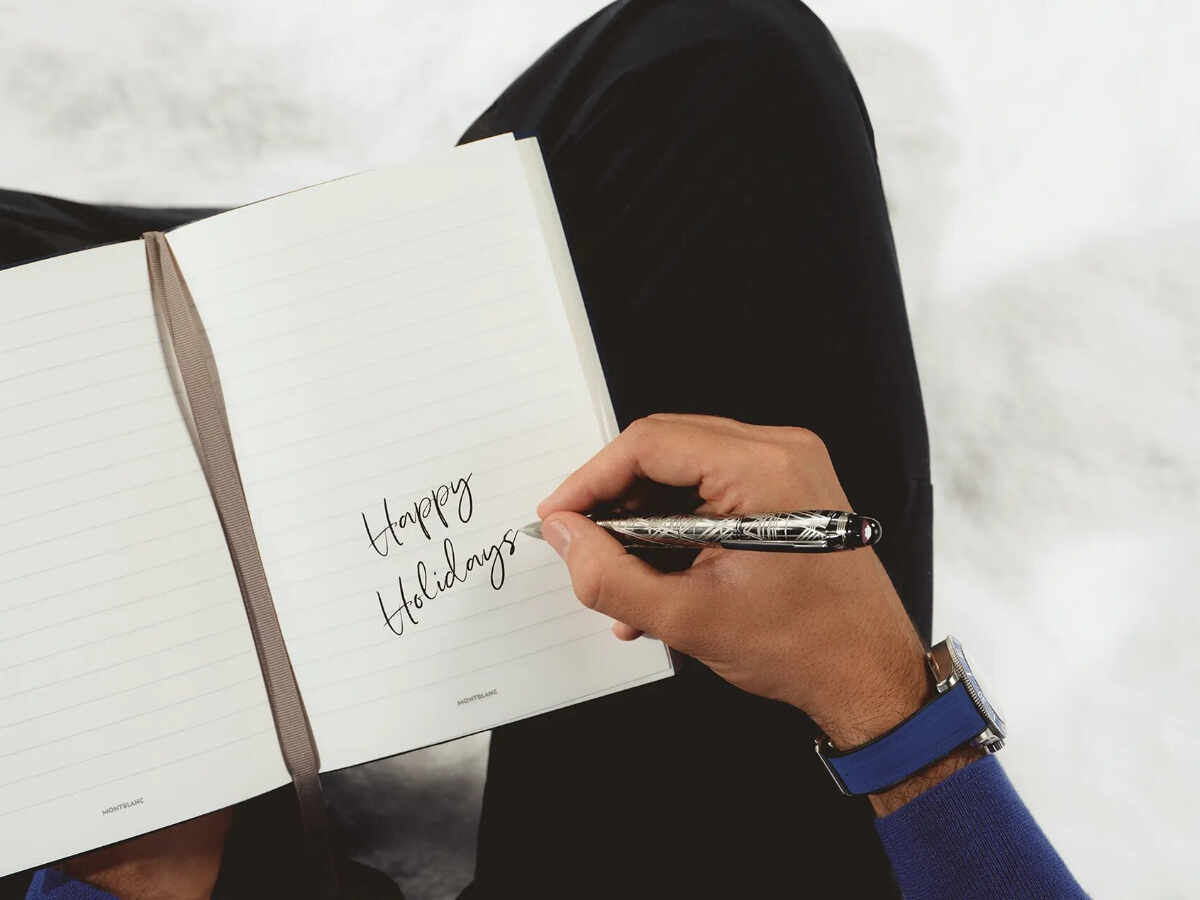 Happy
Holidays
MONTBLANC
MONTBLANC